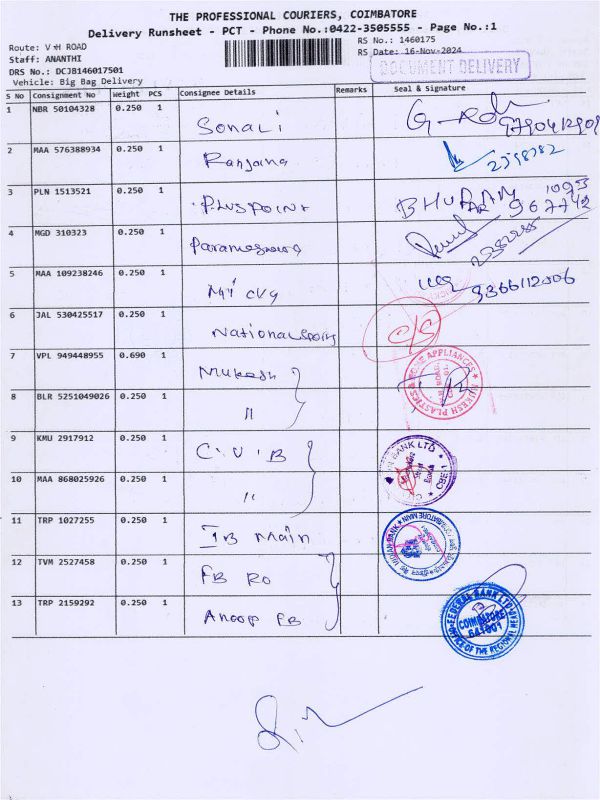 THE PROFESSIONAL COURIERS, COIMBATORE
Delivery Runsheet - PCT - Phone No.:0422-3505555 - Page No.:1
Route: V H ROAD
RS No.: 1460175
Staff: ANANTHI
RS Date: 16-Nov-2024
DRS No.: DCJB146017501
DOCUMENT DELIVERY
Vehicle: Big Bag Delivery
S No Consignment No Weight PCS Consignee Details Remarks Seal & Signature
1 NBR 50104328 0.250 1 Sonali 9790412909
2 MAA 576388934 0.250 1 Ranjana
3 PLN 1513521 0.250 1 Pluspoint
4 MGD 310323 0.250 1 Parameswara
5 MAA 109238246 0.250 1 9366112006
6 JAL 530425517 0.250 1 National sports
7 VPL 949448955 0.690 1 Mukesh
MUKESH PLASTICS & HOME APPLIANCES
8 BLR 5251049026 0.250 1 "
9 KMU 2917912 0.250 1 C.U.B
BANK LTD CBE-1
10 MAA 868025926 0.250 1 "
11 TRP 1027255 0.250 1 IB Main
INDIAN BANK COIMBATORE MAIN
12 TVM 2527458 0.250 1 FB RO
13 TRP 2159292 0.250 1 Anoop FB
FEDERAL BANK LTD
COIMBATORE
641001
OFFICE OF THE REGIONAL